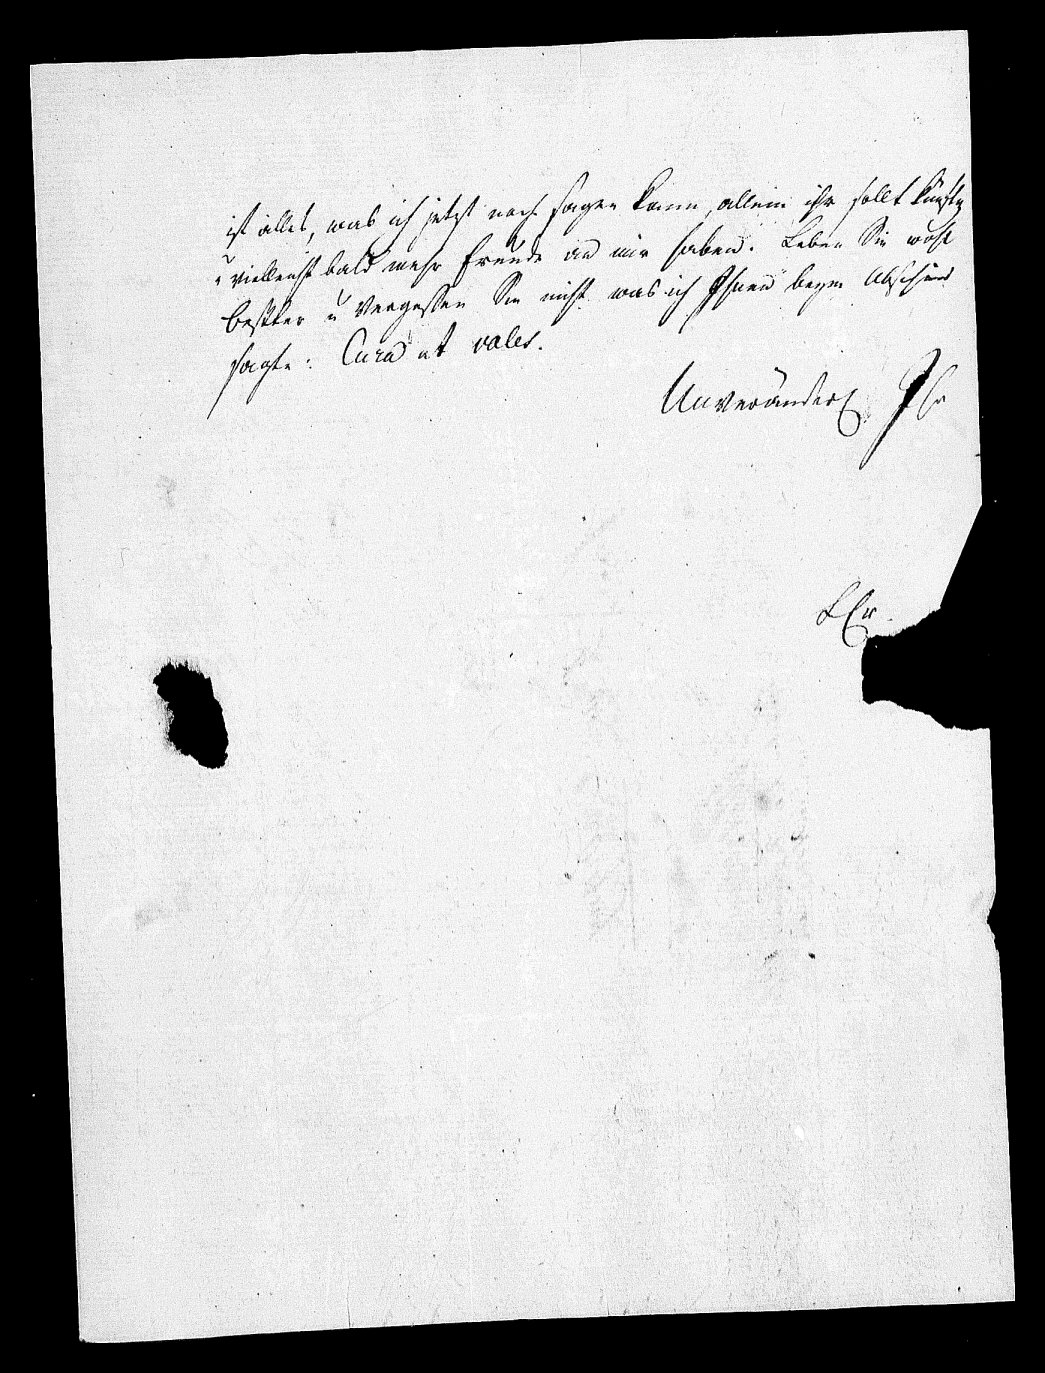 ist alles, was ich jetzt noch sagen kann, allein ihr sollt künftig
u vielleicht bald mehr Freude an mir haben. Leben Sie wohl
bester u vergessen Sie nicht was ich Ihnen beym Abschied
sagte: Cura ut vales.
Unveränderl. Ihr